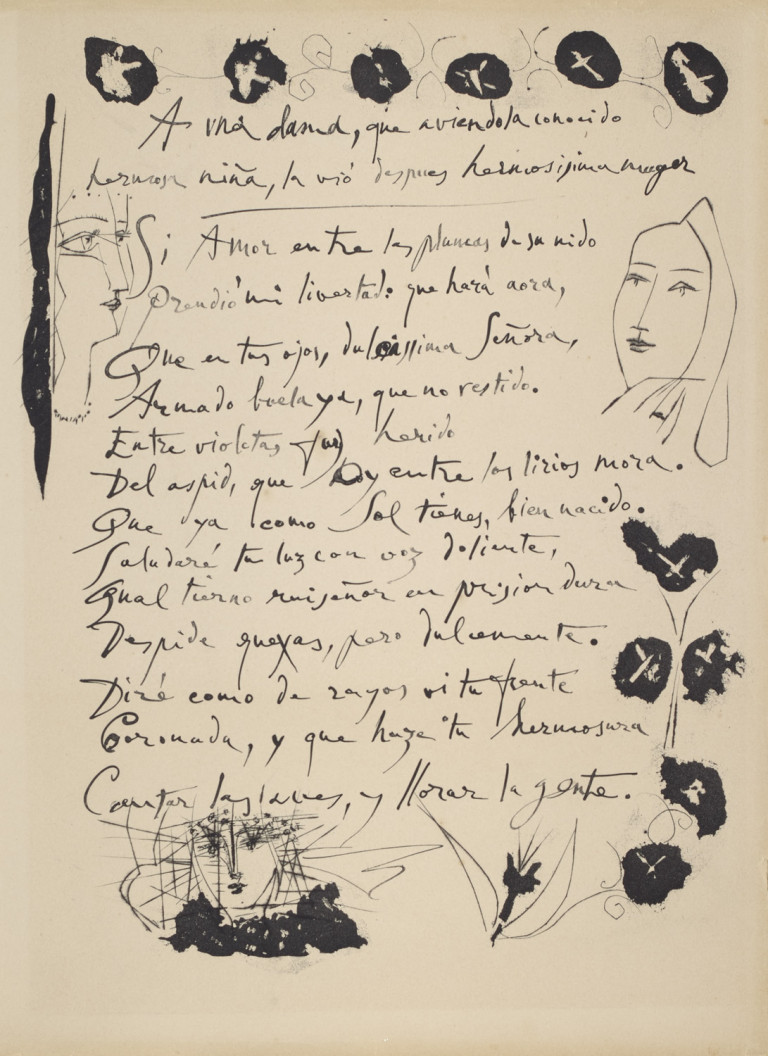 A una dama, que aviendola conocido
hermosa niña, la vió despues hermosisima muger
Si Amor entre las plumas de su nido
Prendió mi livertad: que hará aora,
Que en tus ojos, dulcissima Señora,
Armado buela ya, que no vestido.
Entre violetas fui herido
Del aspid, que oy entre los lirios mora.
Que ya como Sol tienes, bien nacido.
Saludaré tu luz con voz doliente,
Qual tierno ruiseñor en prision dura
Despide quexas, pero dulcemente.
Diré como de rayos vi tu frente
Coronada, y que haze tu hermosura
Cantar las aves, y llorar la gente.